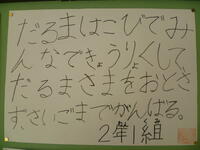 だるまはこびでみ
んなできょうりょくして
だるまさまをおとさ
ず、さいごまでがんばる。
2年1組